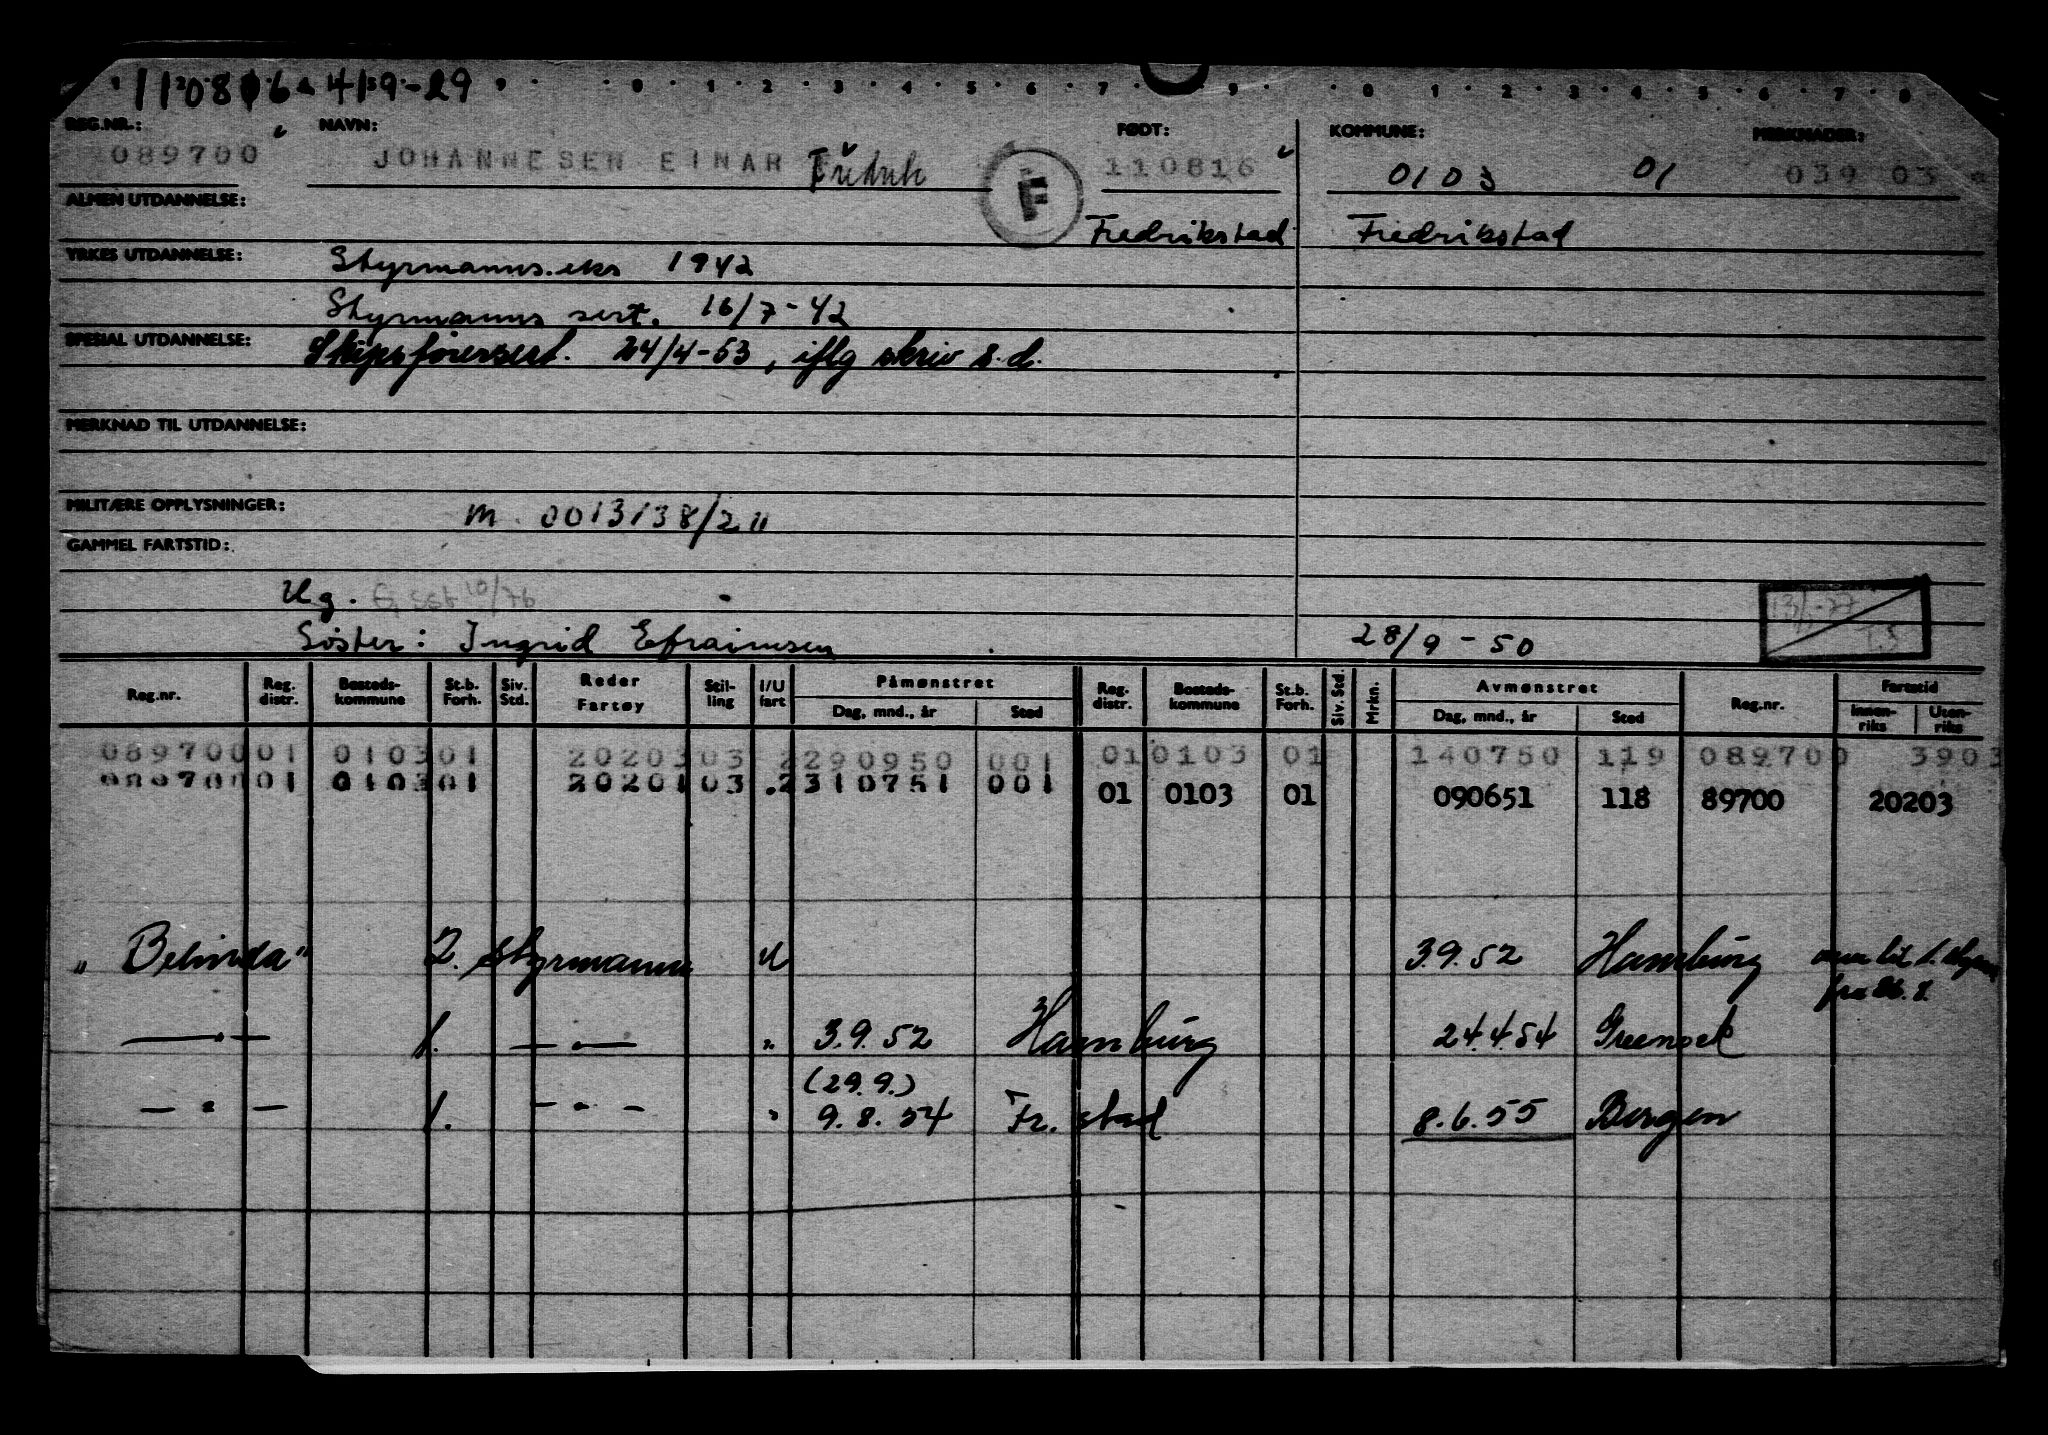 110816 419-29
0 1 2 3 4 5 6 7 9 0 1 2 3 4 5 6 7 8
REG.NR.: NAVN: FØDT: KOMMUNE: MERKNADER:
089700 JOHANNESEN EINAR Fredrik F 110816 0103 01 039 03
ALMEN UTDANNELSE: Fredrikstad Fredrikstad
YRKES UTDANNELSE: Styrmanns.eks 1942
Styrmanns sert. 16/7-42
SPESIAL UTDANNELSE: Skipsførersert. 24/4-53, iflg skriv s.d.
MERKNAD TIL UTDANNELSE:
MILITÆRE OPPLYSNINGER: M. 0013138/2
GAMMEL FARTSTID:
Ug. 10/76
Søster: Ingrid Efraimsen 28/9-50
Reg.nr. Reg. distr. Bosteds-kommune St.b. Forh. Siv. Std. Reder Fartøy Stil-ling I/U fart Påmønstret Dag, mnd., år Sted Reg. distr. Bosteds-kommune St.b. Forh. Siv. Std. Mrkn. Avmønstret Dag, mnd., år Sted Reg.nr. Fartstid Innen-riks Uten-riks
089700 01 0103 01 20203 03 2 290950 001 01 0103 01 140750 119 089700 3903
089700 01 0103 01 20201 03 .2 310751 001 01 0103 01 090651 118 89700 20203
"Belinda" 2. styrmann U 3.9.52 Hamburg
— " — 1. — " — " 3.9.52 Hamburg 24.4.54 Greenock
(29.9.)
— " — 1. — " — " 9.8.54 Fr.stad 8.6.55 Bergen